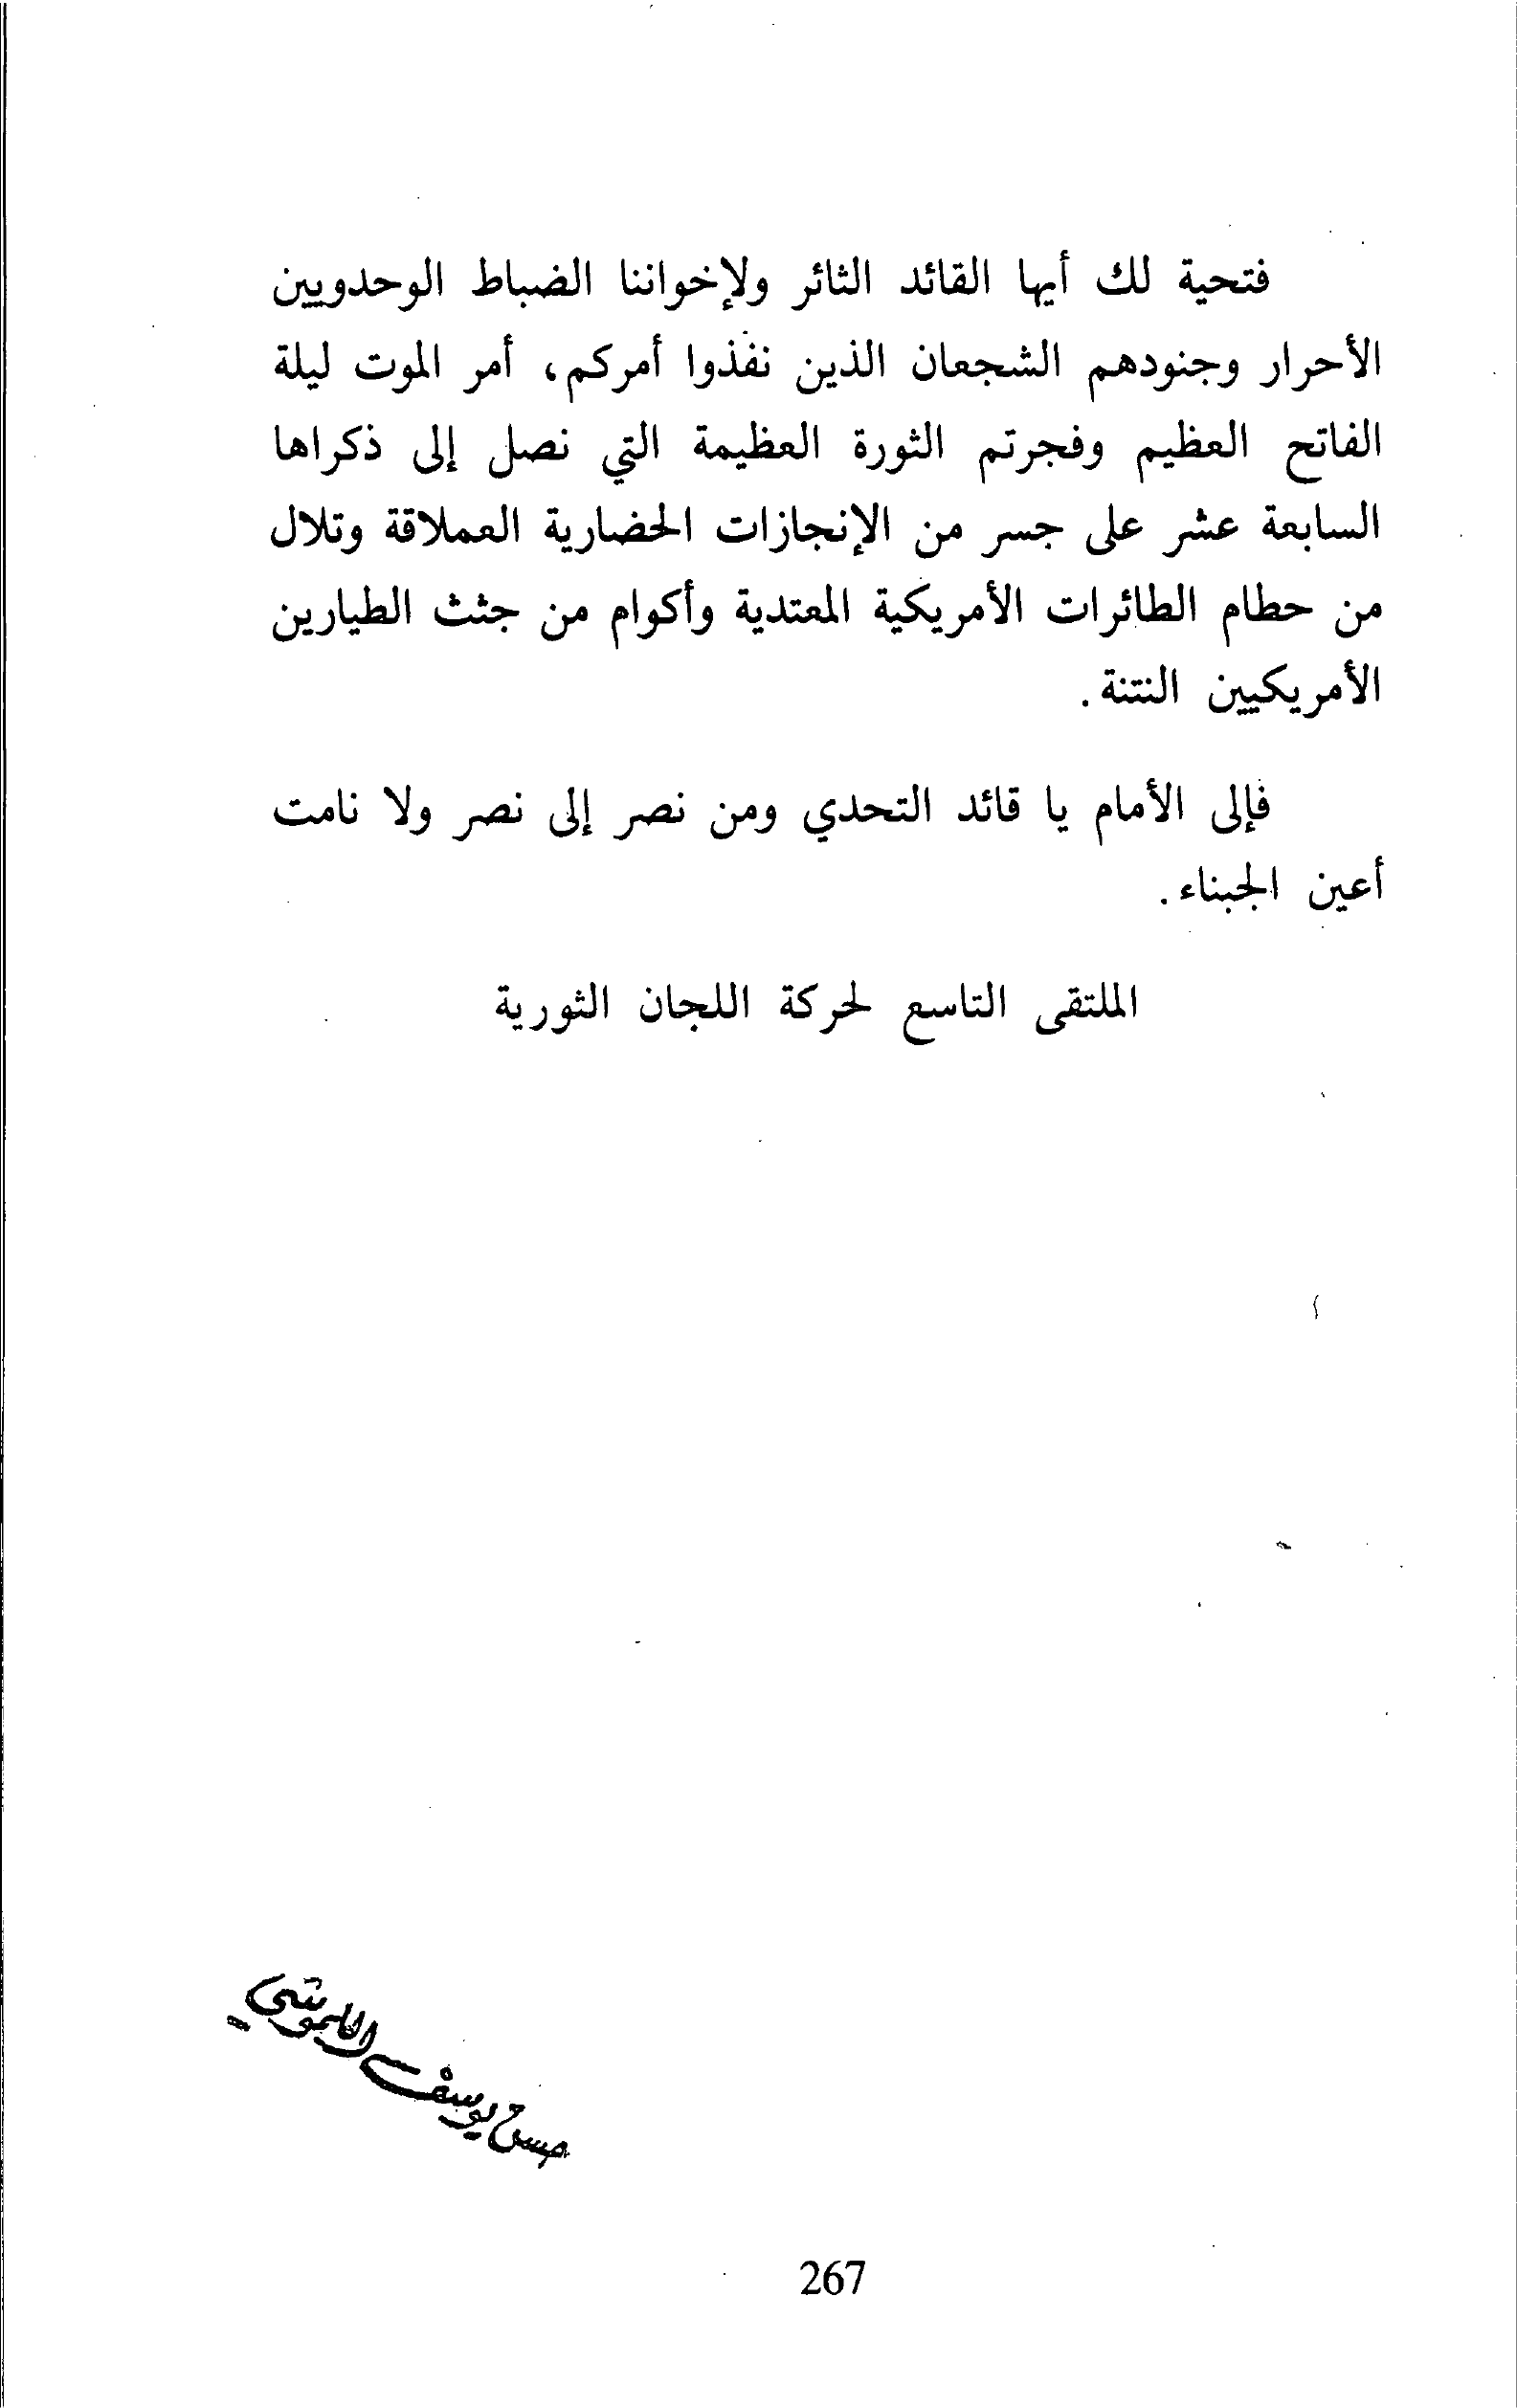 فتحية لك أيها القائد الثائر ولإخواننا الضباط الوحدويين
الأحرار وجنودهم الشجعان الذين نفذوا أمركم، أمر الموت ليلة
الفاتح العظيم وفجرتم الثورة العظيمة التي نصل إلى ذكراها
السابعة عشر على جسر من الإنجازات الحضارية العملاقة وتلال
من حطام الطائرات الأمريكية المعتدية وأكوام من جثث الطيارين
الأمريكيين النتنة.
فإلى الأمام يا قائد التحدي ومن نصر إلى نصر ولا نامت
أعين الجبناء.
الملتقى التاسع لحركة اللجان الثورية
حسن يوسف
267